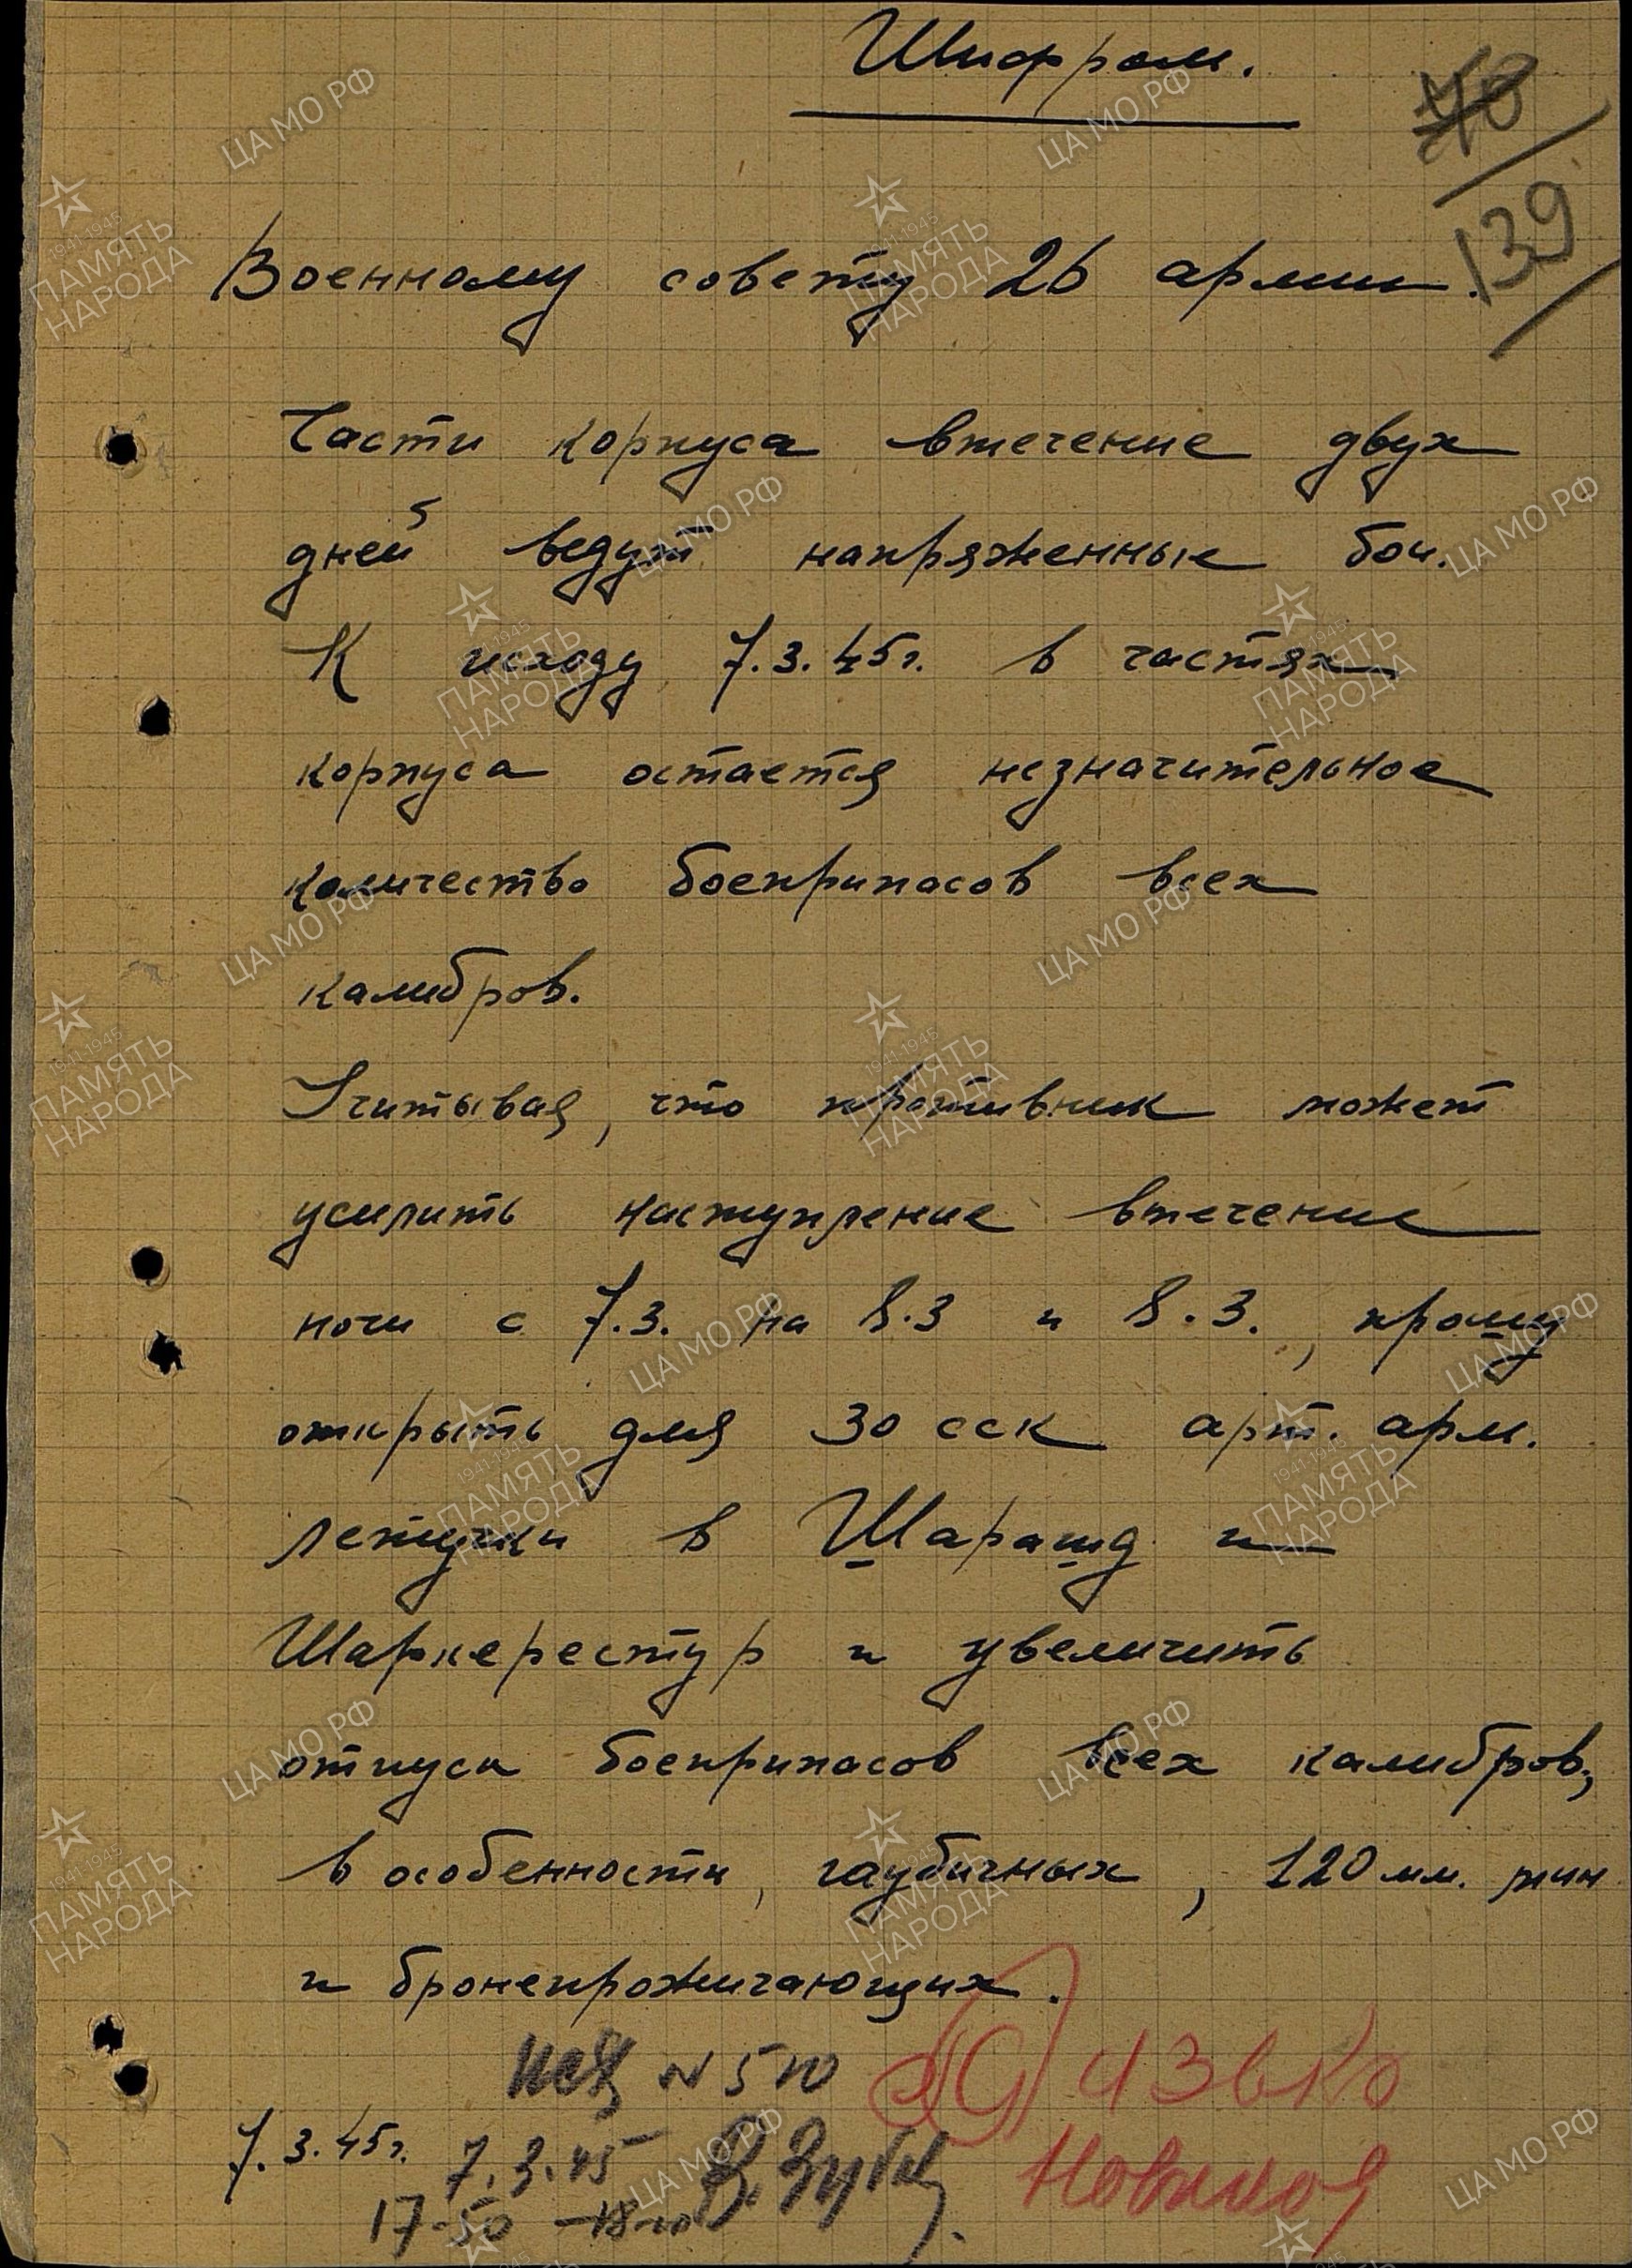 Шифром.
70
139
Военному совету 26 армии.
Части корпуса втечение двух
дней ведут напряженные бои.
К исходу 7.3.45г. в частях
корпуса остается незначительное
количество боеприпасов всех
калибров.
Учитывая, что противник может
усилить наступление втечение
ночи с 7.3. на 8.3 и 8.3., прошу
открыть для 30 сск арт. арм.
летучки в Шарашд и
Шаркерестур и увеличить
отпуск боеприпасов всех калибров,
в особенности, гаубичных, 120 мм. мин
и бронепрожигающих.
исх N 510
7.3.45г. 7.3.45
17-50 -18-10
ЦА МО РФ
1941-1945
ПАМЯТЬ
НАРОДА